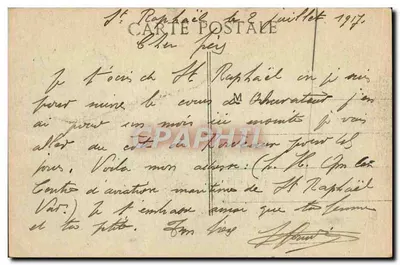 St Raphaël le 2 juillet 1917.
CARTE POSTALE
Cher frère
Je t'écris de St Raphaël où je suis
pour suivre le cours d'Observateur j'en
ai pour un mois ici ensuite je vais
aller du côté de pour les
jours. Voilà mon adresse : (
Centre d'aviation maritime de St Raphaël
Var.) Je t'embrasse ainsi que ta femme
et ta ptite. Ton frère